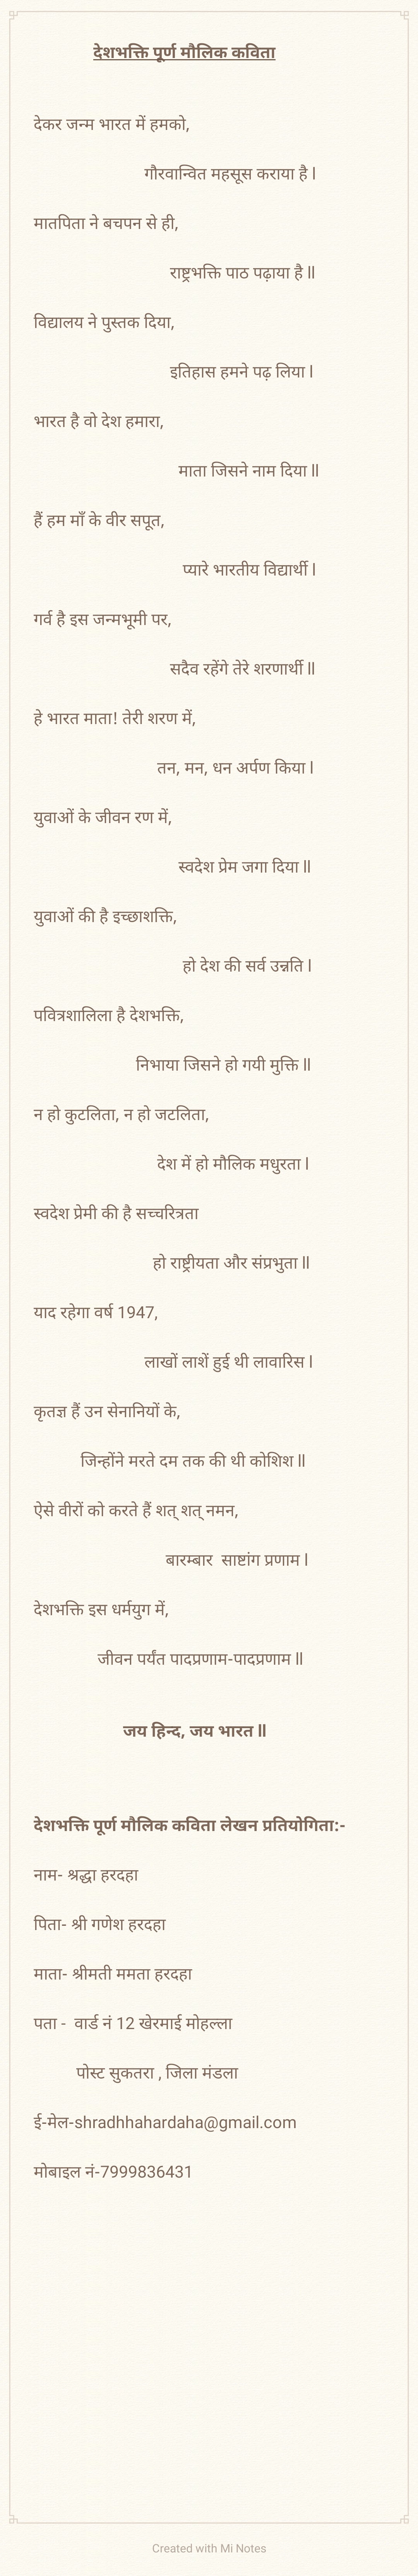 देशभक्ति पूर्ण मौलिक कविता
देकर जन्म भारत में हमको,
गौरवान्वित महसूस कराया है l
मातपिता ने बचपन से ही,
राष्ट्रभक्ति पाठ पढ़ाया है ll
विद्यालय ने पुस्तक दिया,
इतिहास हमने पढ़ लिया l
भारत है वो देश हमारा,
माता जिसने नाम दिया ll
हैं हम माँ के वीर सपूत,
प्यारे भारतीय विद्यार्थी l
गर्व है इस जन्मभूमी पर,
सदैव रहेंगे तेरे शरणार्थी ll
हे भारत माता! तेरी शरण में,
तन, मन, धन अर्पण किया l
युवाओं के जीवन रण में,
स्वदेश प्रेम जगा दिया ll
युवाओं की है इच्छाशक्ति,
हो देश की सर्व उन्नति l
पवित्रशालिला है देशभक्ति,
निभाया जिसने हो गयी मुक्ति ll
न हो कुटलिता, न हो जटलिता,
देश में हो मौलिक मधुरता l
स्वदेश प्रेमी की है सच्चरित्रता
हो राष्ट्रीयता और संप्रभुता ll
याद रहेगा वर्ष 1947,
लाखों लाशें हुई थी लावारिस l
कृतज्ञ हैं उन सेनानियों के,
जिन्होंने मरते दम तक की थी कोशिश ll
ऐसे वीरों को करते हैं शत् शत् नमन,
बारम्बार  साष्टांग प्रणाम l
देशभक्ति इस धर्मयुग में,
जीवन पर्यंत पादप्रणाम-पादप्रणाम ll
जय हिन्द, जय भारत ll
देशभक्ति पूर्ण मौलिक कविता लेखन प्रतियोगिता:-
नाम- श्रद्धा हरदहा
पिता- श्री गणेश हरदहा
माता- श्रीमती ममता हरदहा
पता -  वार्ड नं 12 खेरमाई मोहल्ला
पोस्ट सुकतरा , जिला मंडला
ई-मेल-shradhhahardaha@gmail.com
मोबाइल नं-7999836431
Created with Mi Notes